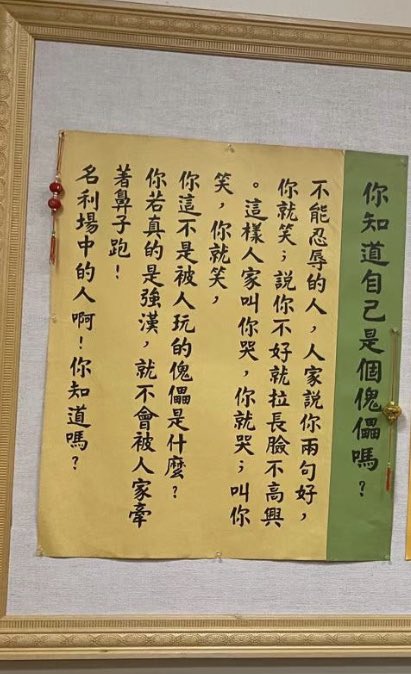 你知道自己是個傀儡嗎？
不能忍辱的人，人家說你兩句好，
你就笑；說你不好就拉長臉不高興
。這樣人家叫你哭，你就哭；叫你
笑，你就笑，
你這不是被人玩的傀儡是什麼？
你若真的是強漢，就不會被人家牽
著鼻子跑！
名利場中的人啊！你知道嗎？